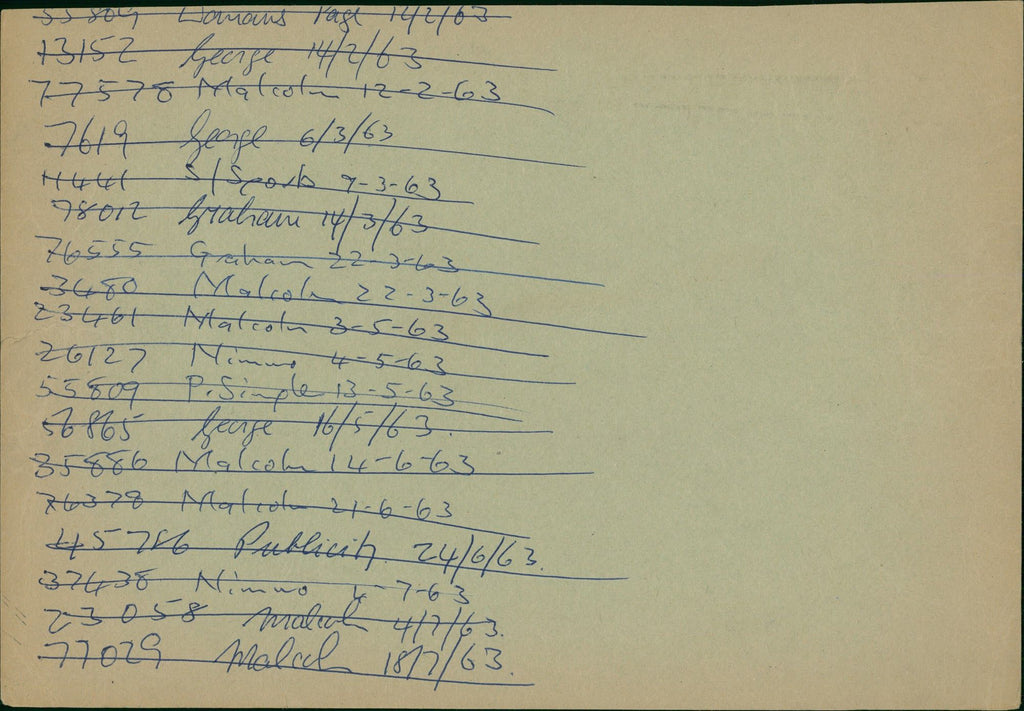 55809 Womans Page 14/2/63
13152 George 14/2/63
77578 Malcolm 12-2-63
7619 George 6/3/63
11441 S/Sports 9-3-63
98012 Graham 14/3/63
76555 Graham 22-3-63
3480 Malcolm 22-3-63
23461 Malcolm 3-5-63
26127 Nimmo 4-5-63
55809 P. Simple 13-5-63
56865 George 16/5/63.
35886 Malcolm 14-6-63
76378 Malcolm 21-6-63
45786 Publicity. 24/6/63.
37438 Nimmo 4-7-63
23058 Malcolm 4/7/63.
77029 Malcolm 18/7/63.